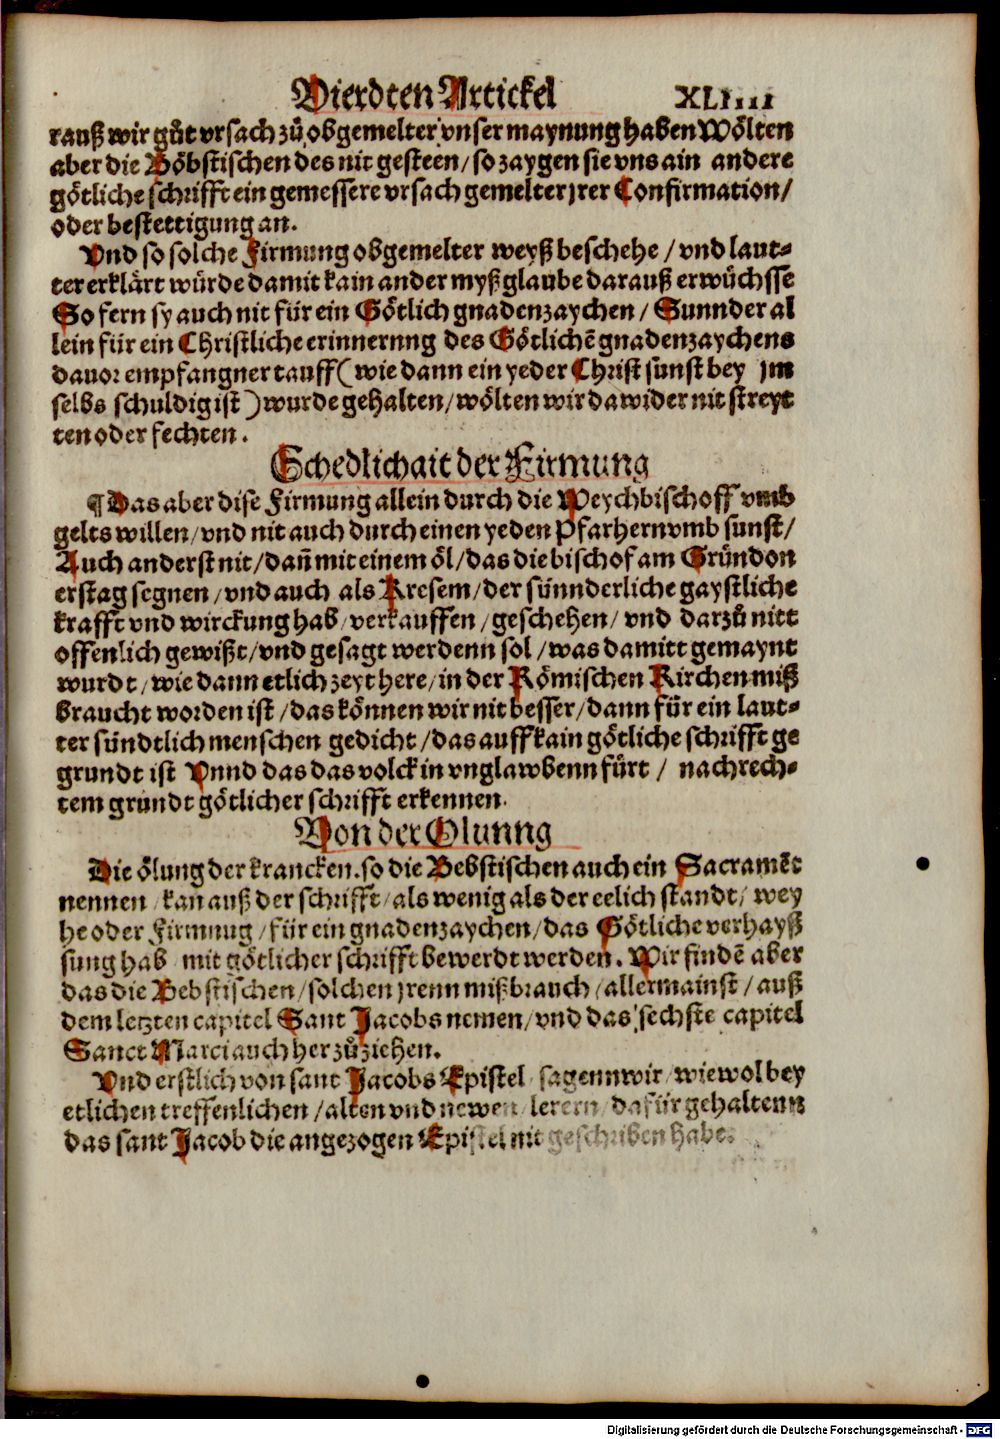 Vierdten Artickel XLIIII
rauß wir gůt vrsach zů obgemelter vnser maynung haben Wölten
aber die Böbstischen des nit gesteen / so zaygen sie vns ain andere
götliche schrifft ein gemessere vrsach gemelter jrer Confirmation /
oder bestettigung an.
Vnd so solche Firmung obgemelter weyß beschehe / vnd laut⸗
ter erklärt würde damit kain ander myßglaube darauß erwüchsse
So fern sy auch nit für ein Götlich gnadenzaychen / Sunnder al
lein für ein Christliche erinnerung des Götlichē gnadenzaychens
dauor empfangner tauff (wie dann ein yeder Christ sunst bey jm
selbs schuldig ist) wurde gehalten / wölten wir dawider nit streyt
ten oder fechten.
Schedlichait der Firmung
¶ Das aber dise Firmung allein durch die Weychbischoff vmb
gelts willen / vnd nit auch durch einen yeden Pfarhern vmb sunst /
Auch anderst nit / dañ mit einem öl / das die bischof am Gründon
erstag segnen / vnd auch als Kresem / der sünnderliche gaystliche
krafft vnd wirckung hab / verkauffen / geschehen / vnd darzů nitt
offenlich gewißt / vnd gesagt werdenn sol / was damitt gemaynt
wurdt / wie dann etlich zeyt here / in der Römischen Kirchen miß
braucht worden ist / das können wir nit besser / dann für ein laut⸗
ter sündtlich menschen gedicht / das auff kain götliche schrifft ge
grundt ist Vnnd das das volck in vnglawbenn fürt / nach rech⸗
tem grundt götlicher schrifft erkennen.
Von der Olunng
Die ölung der krancken. so die Bebstischen auch ein Sacramēt
nennen / kan auß der schrifft / als wenig als der eelich standt / wey
he oder Firmnug / für ein gnadenzaychen / das Götliche verhayß
sung hab mit götlicher schrifft bewerdt werden. Wir findē aber
das die Bebstischen / solchen jrenn mißbrauch / allermainst / auß
dem letzten capitel Sant Jacobs nemen / vnd das sechste capitel
Sanct Marci auch herzůziehen.
Vnd erstlich von sant Jacobs Epistel sagenn wir / wiewol bey
etlichen treffenlichen / alten vnd newen lerern / dafür gehaltenn
das sant Jacob die angezogen Epistel nit geschriben habe.
Digitalisierung gefördert durch die Deutsche Forschungsgemeinschaft - DFG